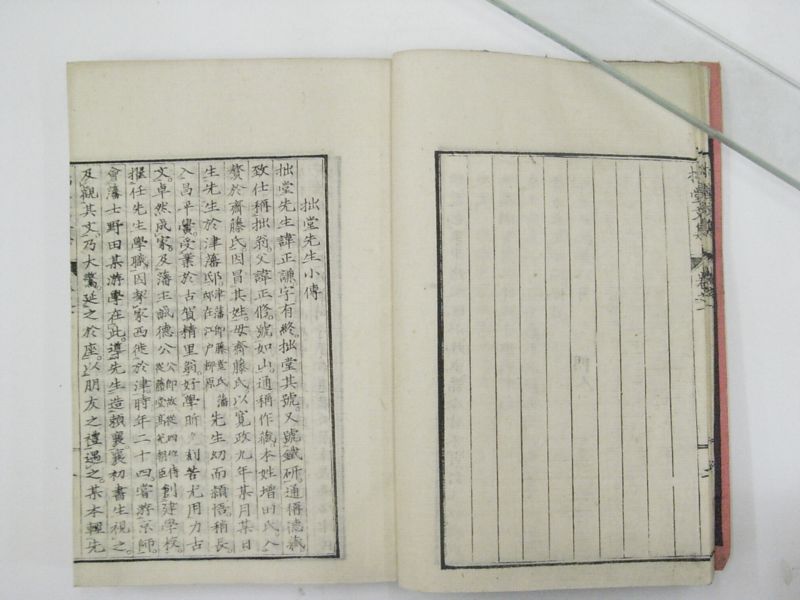 拙堂先生小傳
拙堂先生諱正謙字有終拙堂其號又號鐵研通稱德藏
致仕稱拙翁父諱正脩號如山通稱作藏本姓增田氏入
贅於齋藤氏因冒其姓母齋藤氏以寬政九年某月某日
生先生於津藩邸津藩即藤堂氏藩邸在江戶柳原先生幼而穎悟稍長
入昌平黌受業於古賀精里翁好學刻苦尤用力古
文卓然成家及藩主誠德公公即故從四位侍從藤堂高兌朝臣創建學校
擢任先生學職因挈家西徙於津時年二十四嘗游京師
會藩士野田某游學在此導先生造賴襄襄初書生視之
及觀其文乃大驚延之於座以朋友之禮遇之某本輕先